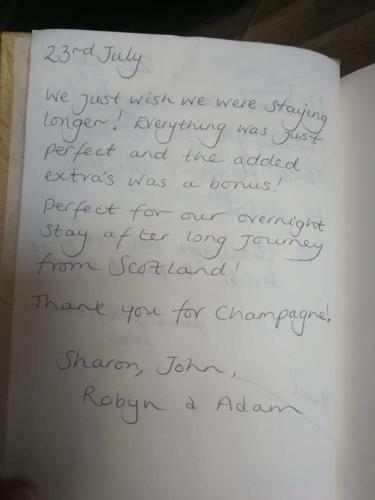 23rd July
We just wish we were staying
longer! Everything was just
perfect and the added
extra's was a bonus!
Perfect for our overnight
stay after long journey
from Scotland!
Thank you for Champagne!
Sharon, John,
Robyn & Adam